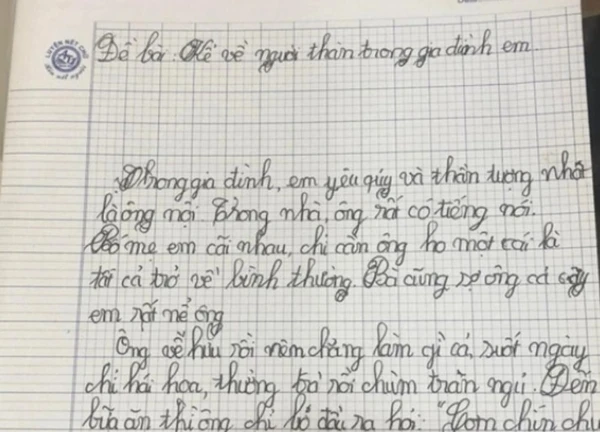 LUYỆN NÉT CHỮ
Rèn nét người
Đề bài: Kể về người thân trong gia đình em.
Trong gia đình, em yêu qúy và thần tượng nhất
là ông nội. Trong nhà, ông rất có tiếng nói.
Bố mẹ em cãi nhau, chỉ cần ông ho một cái là
tất cả trở về bình thường. Bà cũng sợ ông cơ
em rất nể ông
Ông về hưu rồi nên chẳng làm gì cả, suốt ngày
chỉ hái hoa, thưởng trà rồi chùm trăn ngủ. Đến
bữa ăn thì ông chỉ ló đầu ra hỏi: "Cơm chín